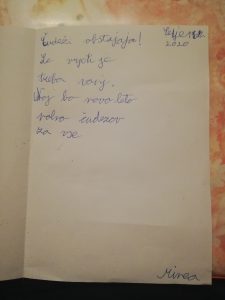 Čudeži obstajajo!
Le verjeti je
treba vanj.
Naj bo novo leto
polno čudežov
za vse
2020
Mirca